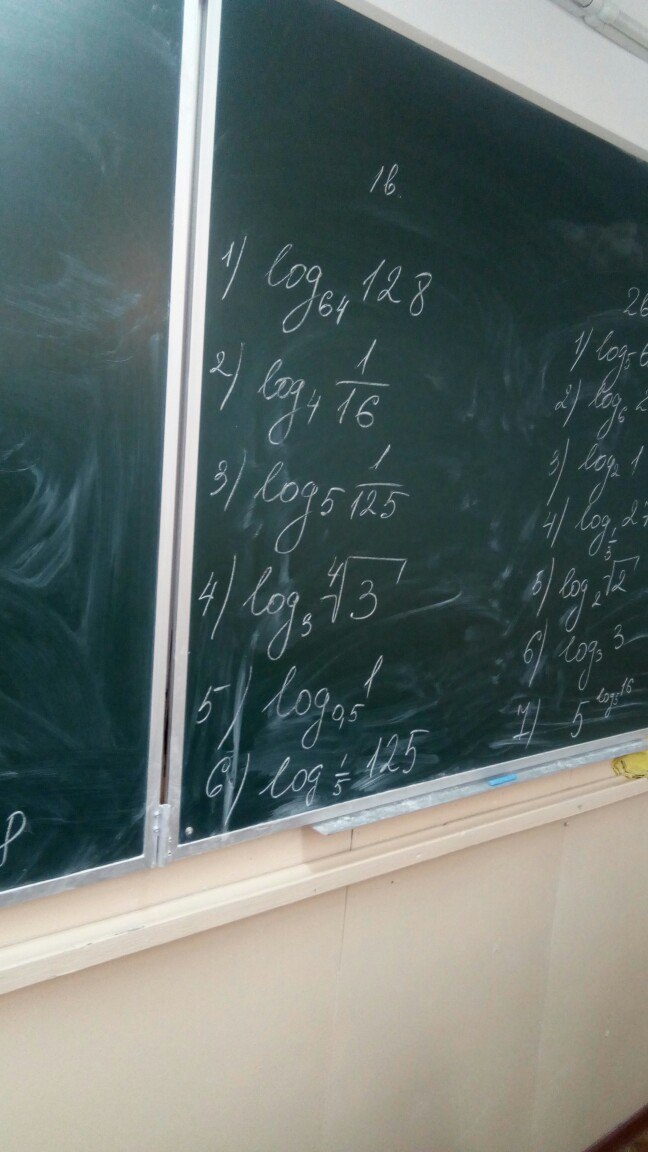 1в.
1) log₆₄ 128
2) log₄ 1/16
3) log₅ 1/125
4) log₃ ⁴√3
5) log₀,₅ 1
6) log_{1/5} 125
2б
1) log₅
2) log₆
3) log₂ 1
4) log_{1/3} 27
5) log₂ √2
6) log₃ 3
7) 5^{log₅ 16}
8